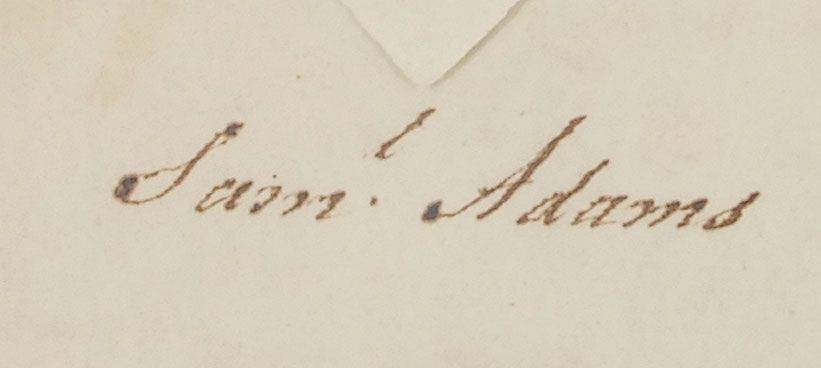 Sam.l Adams